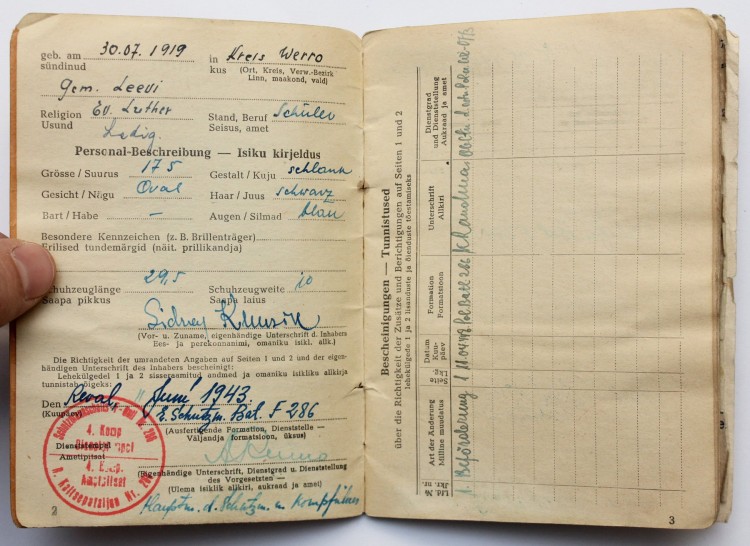 geb. am 30.07.1919 in Kreis Werro
sündinud kus (Ort, Kreis, Verw.-Bezirk
Linn, maakond, vald)
Gem. Leevi
Religion Ev. Luther Stand, Beruf Schüler
Usund Seisus, amet
Ledig.
Personal-Beschreibung — Isiku kirjeldus
Grösse / Suurus 175 Gestalt / Kuju schlank
Gesicht / Nägu Oval Haar / Juus schwarz
Bart / Habe — Augen / Silmad blau
Besondere Kennzeichen (z. B. Brillenträger)
Erilised tundemärgid (näit. prillikandja)
29,5 10
Schuhzeuglänge Schuhzeugweite
Saapa pikkus Saapa laius
Sidney
(Vor- u. Zuname, eigenhändige Unterschrift d. Inhabers
Ees- ja perekonnanimi, omaniku isikl. alkk.)
Die Richtigkeit der umrandeten Angaben auf Seiten 1 und 2 und der eigen-
händigen Unterschrift des Inhabers bescheinigt:
Lehekülgedel 1 ja 2 sissegeraamitud andmed ja omaniku isikliku alkkirja
tunnistab õigeks:
Den Reval, " Juni 1943.
(Kuupäev) E. Schutzm. Bat. F 286
(Ausfertigende Formation, Dienststelle —
Väljaandja formatsioon, üksus)
Dienststempel
Ametipitsat
(Eigenhändige Unterschrift, Dienstgrad u. Dienststellung
des Vorgesetzten —
(Ülema isiklik allkiri, aukraad ja amet)
Hauptm. d. Schutzm. u. Kompführer
4. Komp
Dienststempel
4. Komp.
Ametpitsat
2
Bescheinigungen — Tunnistused
über die Richtigkeit der Zusätze und Berichtigungen auf Seiten 1 und 2
lehekülgede 1 ja 2 lisanduste ja õienduste tõestamiseks
Lfd. №
Jkr. nr.
Art der Änderung
Milline muudatus
Seite
Lkg.
Datum
Kuu-
päev
Formation
Formatsioon
Unterschrift
Allkiri
Dienstgrad
und Dienststellung
Aukraad ja amet
1. Beförderung 1 Pol Batl 286
3